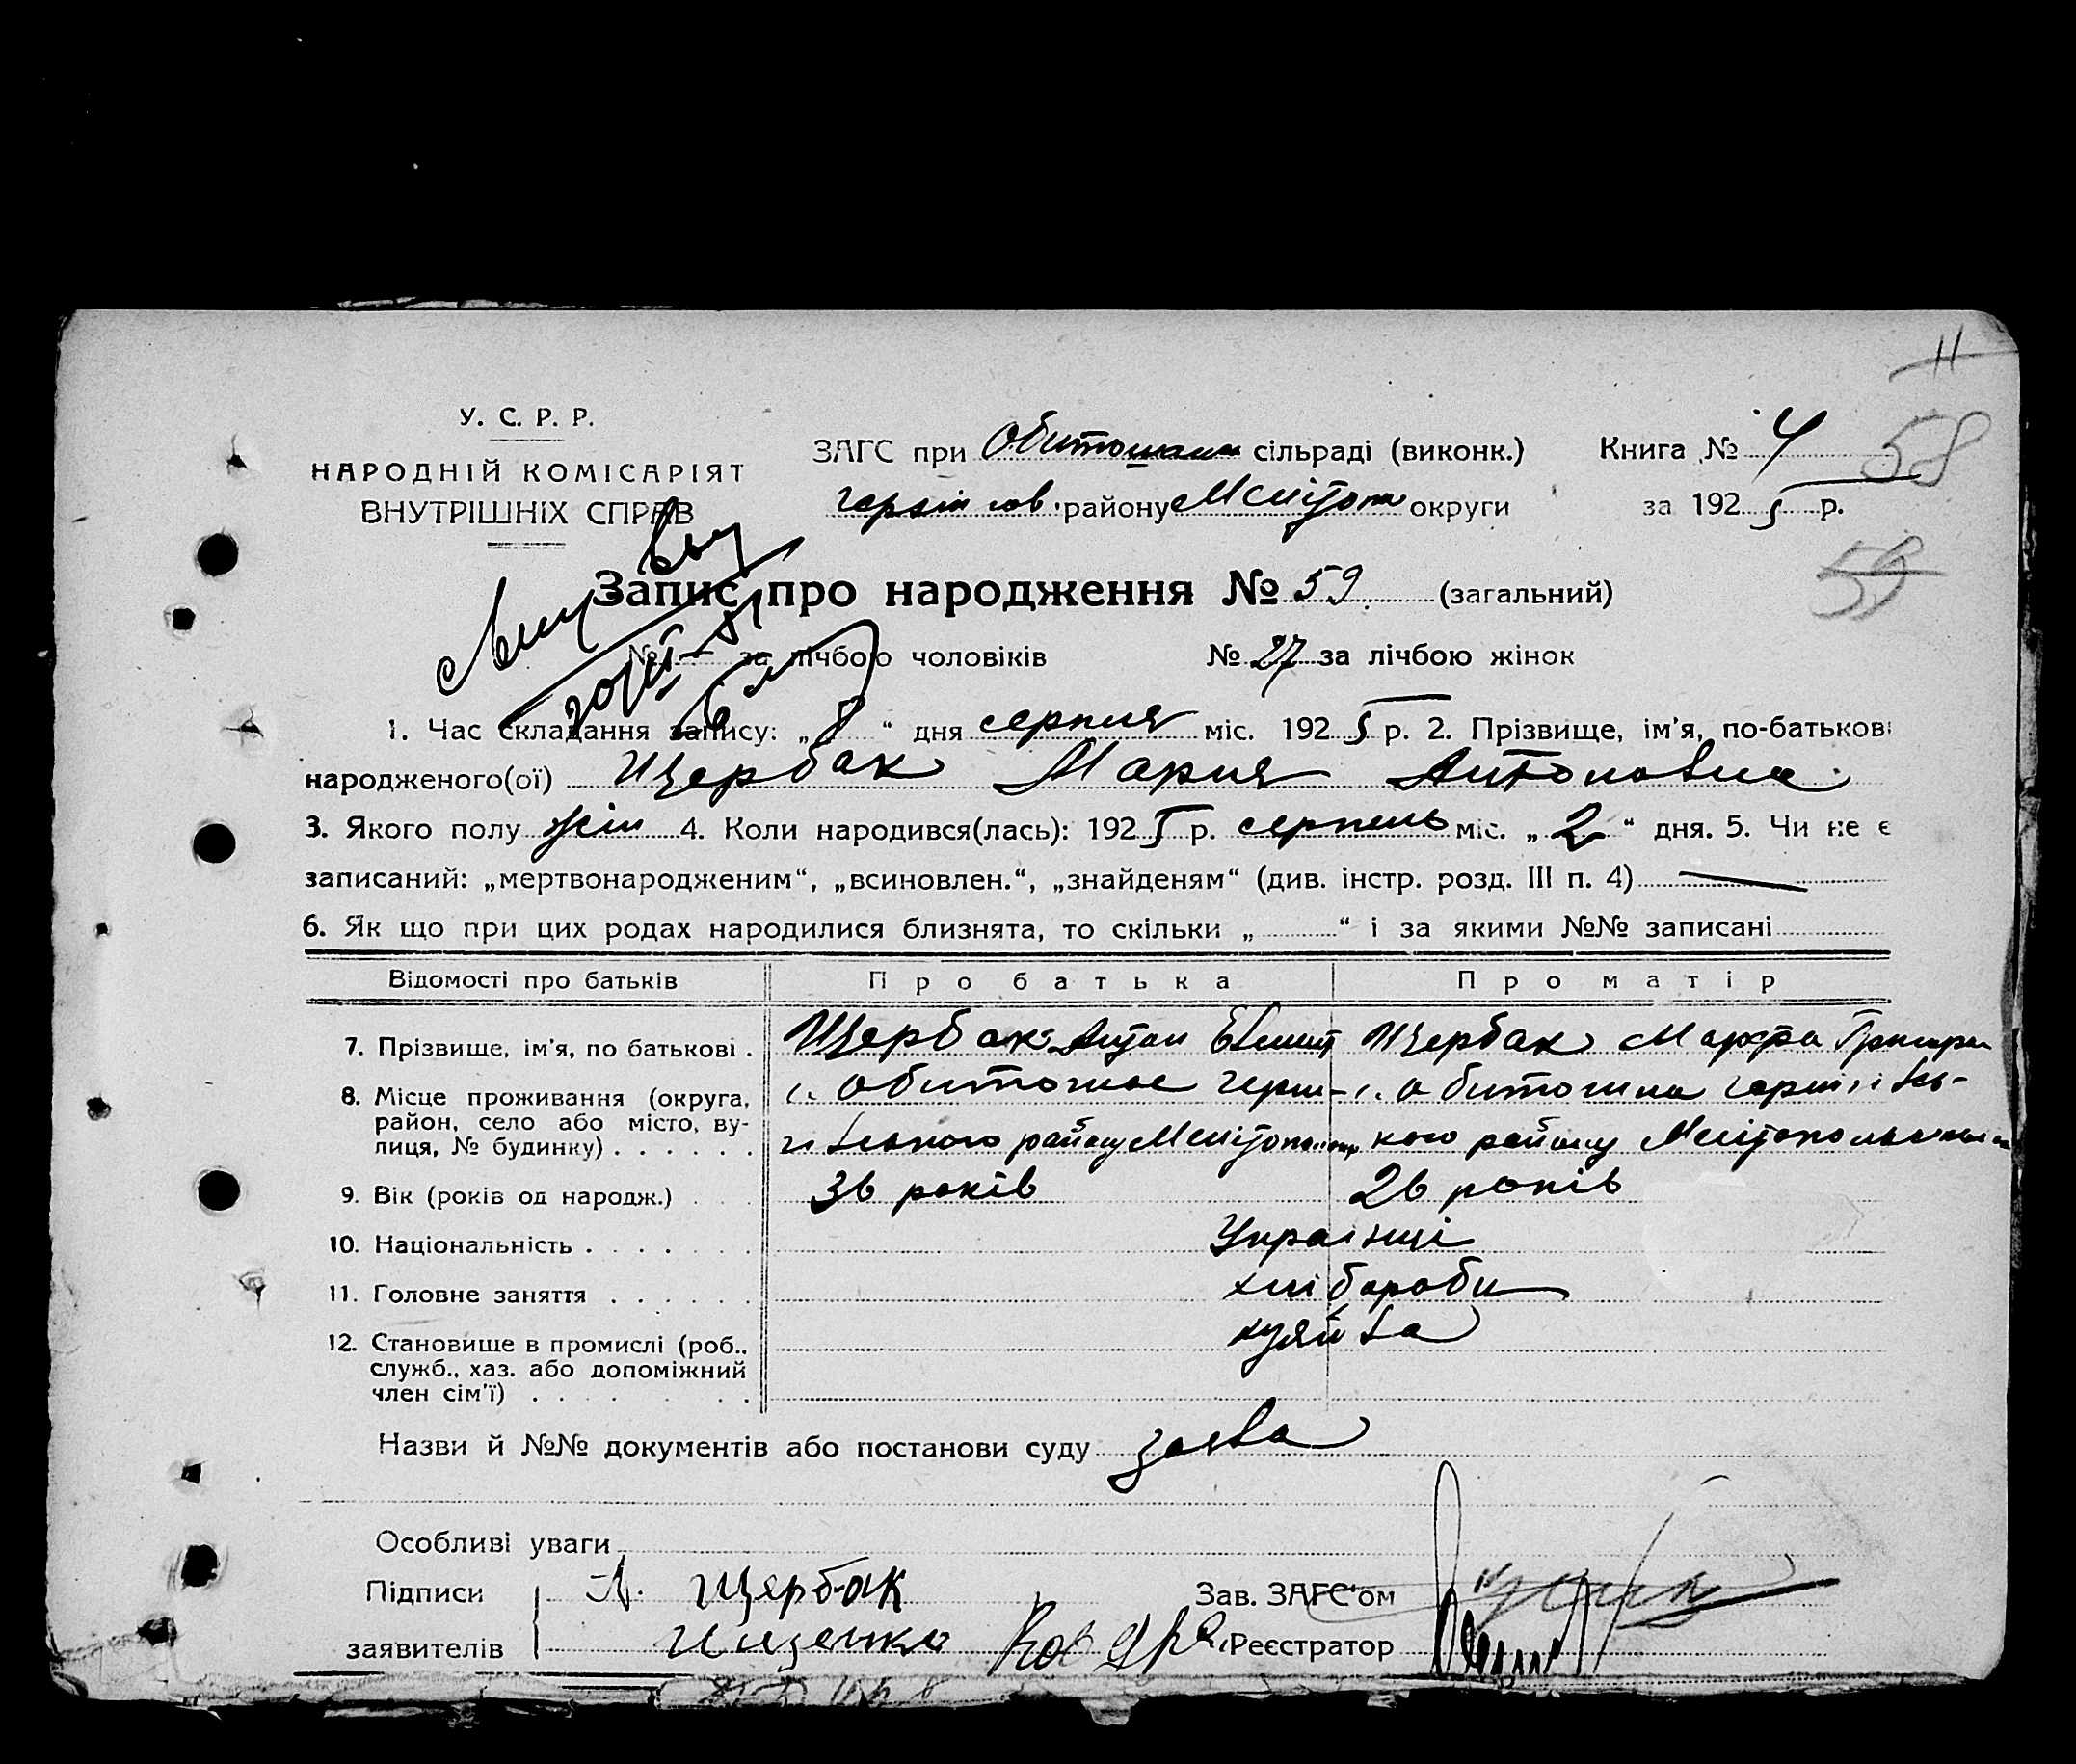 11
У. С. Р. Р.
НАРОДНІЙ КОМІСАРІЯТ
ВНУТРІШНІХ СПРАВ
ЗАГС при сільраді (виконк.)
району Мелітоп округи
Книга № 4
за 1925 р.
58
59
Запис про народження № 59 (загальний)
№ — за лічбою чоловіків № 27 за лічбою жінок
1. Час складання запису: „ 8 “ дня серпня міс. 1925 р. 2. Прізвище, ім'я, по-батькові
народженого(ої) Щербак Мария Антоновна
3. Якого полу жін 4. Коли народився(лась): 1925 р. серпень міс. „ 2 “ дня. 5. Чи не є
записаний: „мертвонародженим“, „всиновлен.“, „знайденям“ (див. інстр. розд. III п. 4) —
6. Як що при цих родах народилися близнята, то скільки „ “ і за якими №№ записані
Відомості про батьків Про батька Про матір
7. Прізвище, ім'я, по батькові . Щербак Антон Щербак Марфа
8. Місце проживання (округа, с. Обиточное с.
район, село або місто, ву- району кого району
лиця, № будинку) . . . . . .
9. Вік (років од народж.) . . 36 років 26 років
10. Національність . . . . . . . Українці
11. Головне заняття . . . . . . хлібороби
12. Становище в промислі (роб.,
служб., хаз. або допоміжний
член сім'ї) . . . . . .
Назви й №№ документів або постанови суду заява
Особливі уваги
Підписи А. Щербак Зав. ЗАГС'ом
заявителів Реєстратор